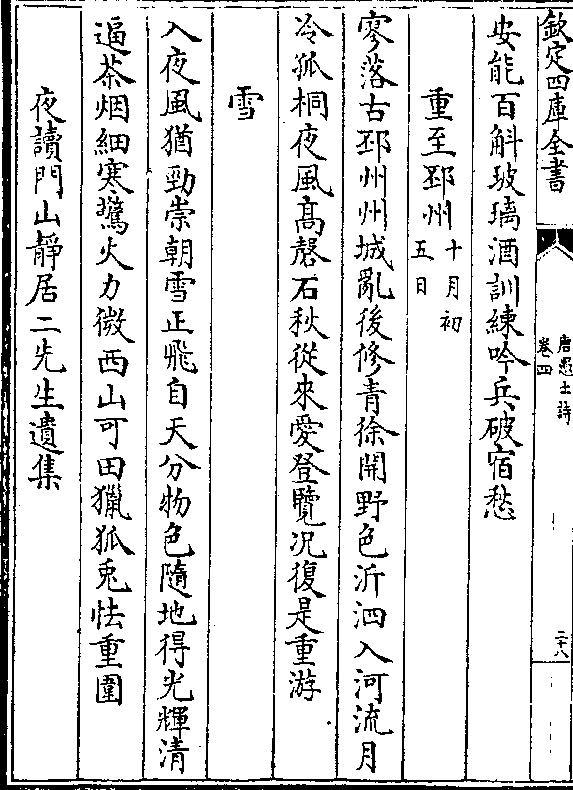 欽定四庫全書
唐愚士詩
卷四
二十八
安能百斛玻璃酒訓練吟兵破宿愁
重至邳州
十月初
五日
寥落古邳州州城亂後修青徐開野色沂泗入河流月
冷孤桐夜風髙磬石秋從來愛登覽况復是重游
雪
入夜風猶勁崇朝雪正飛自天分物色隨地得光輝清
逼茶烟細寒驚火力微西山可田獵狐兎怯重圍
夜讀門山靜居二先生遺集